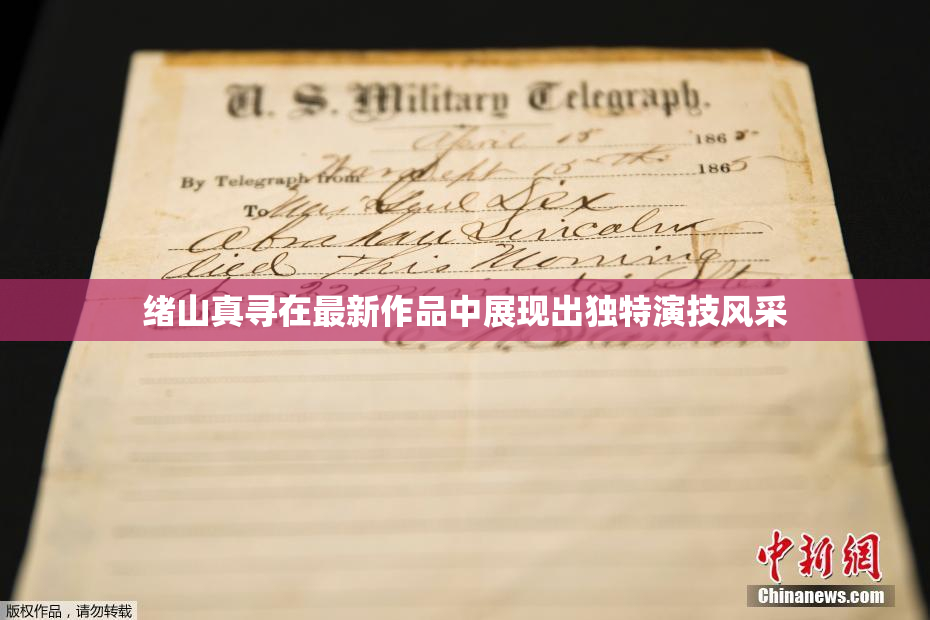 U. S. Military Telegraph.
April 15 1865
By Telegraph from War Dept 15th 1865
To Maj Genl Dix
Abraham Lincoln
died This Morning
22 minutes after
绪山真寻在最新作品中展现出独特演技风采
E. M. Stanton
中新网
Chinanews.com
版权作品，请勿转载